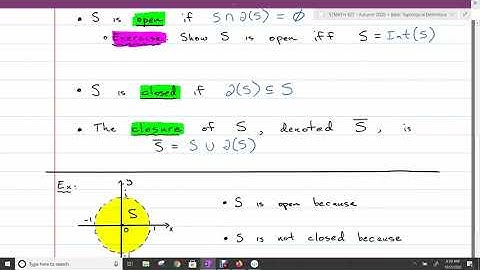 • S is open if S ∩ ∂(S) = ∅
• Exercise: Show S is open iff S = Int(S)
• S is closed if ∂(S) ⊆ S
• The closure of S, denoted S̅, is
S̅ = S ∪ ∂(S)
Ex:
y
S
-1
0
1
x
• S is open because
• S is not closed because
Type here to search